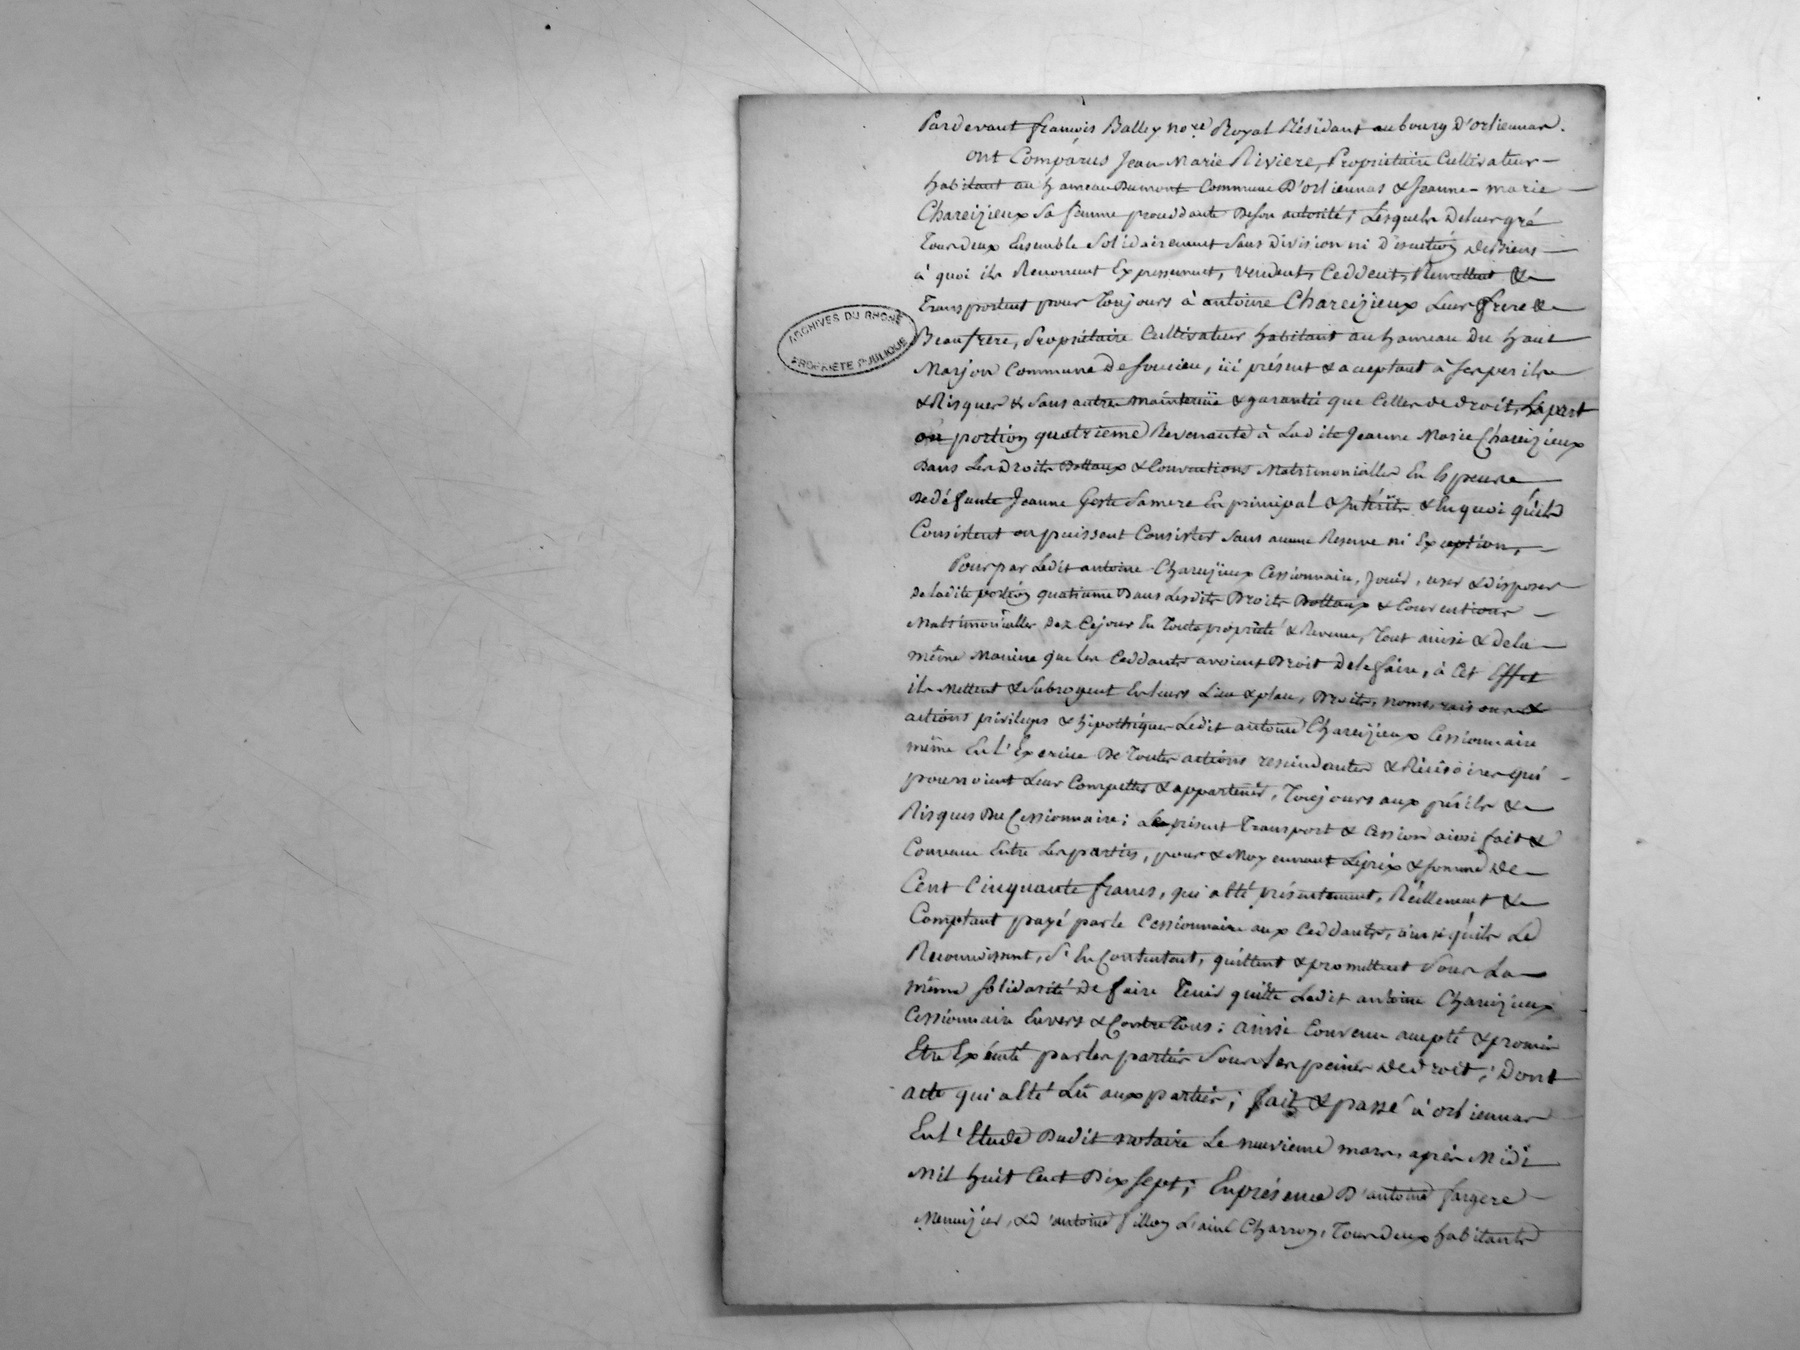 Pardevant françois Balley no.re Royal Résidant au bourg d'orliennas.
ont Comparus Jean Marie Riviere, Propriétaire Cultivateur
habitant au hameau Dumont Commune D'orliennas & Jeanne-marie
Chareizieux Sa femme procédante De son autorité; Lesquels De leur gré
Tous deux Ensemble Solidairement Sans Division ni Discution de Biens
à quoi ils Renoncent Expressement, vendent, Ceddent, Remettent &
Transportent pour Toujours à antoine Chareizieux Leur frere &
Beaufrere, Propriétaire Cultivateur habitant au hameau Du haut
Marjon Commune De soucieu, ici présent & acceptant à Ses perils
& Risques & Sans autre maintenüe & garantie que Celles de droit, La part
ou portion quatrieme Revenante à Ladite Jeanne Marie Chareizieux
Dans Les Droits Dottaux & Conventions Matrimonialles En Espeure
De défunte Jeanne Geste Sa mere En principal & Intérêts & En quoi qu'ils
Consistent ou puissent Consister Sans aucune Reserve ni Exception,
Pour par Ledit antoine Chareizieux Cessionnaire, Jouir, user & disposer
De ladite portion quatrieme Dans Lesdits Droits Dottaux & Conventions
Matrimonialles Dez Cejour En Toute propriété & Revenu, Tout ainsi & de la
même Maniere que les Ceddants avoient Droit de le faire, à Cet Effet
ils Mettent & Subrogent En leurs Lieu & place, Droits, noms, raisons &
actions privileges & hipothéques Ledit antoine Chareizieux Cessionnaire
même En l'Exercice De Toutes actions rescindantes & Récisoires qui
pourroient Leur Compétter & appartenir, Toujours aux périls &
Risques Du Cessionnaire; Le présent Transport & Cession ainsi fait &
Convenu Entre Les parties, pour & Moyennant Le prix & somme de
Cent Cinquante francs, qui a été présentement, Réellement &
Comptant payé par le Cessionnaire aux Ceddants, ainsi qu'ils Le
Reconnoissent, S'En Contentent, quittent & promettent Sous La
même Solidarité De faire Tenir quitte Ledit antoine Chareizieux
Cessionnaire Envers & Contre Tous; ainsi Convenu accepté & promis
Etre Exécuté par les parties Sous les peines de droit; Dont
acte qui a été Lû aux parties; fait & passé à orliennas
En l'Etude Dudit notaire Le neuvieme mars après Midi
Mil huit Cent Dix Sept; En présence D'antoine fargere
Menuizier, & D'antoine fillon L'ainé Charron, Tous Deux habitants
ARCHIVES DU RHÔNE
PROPRIÉTÉ PUBLIQUE